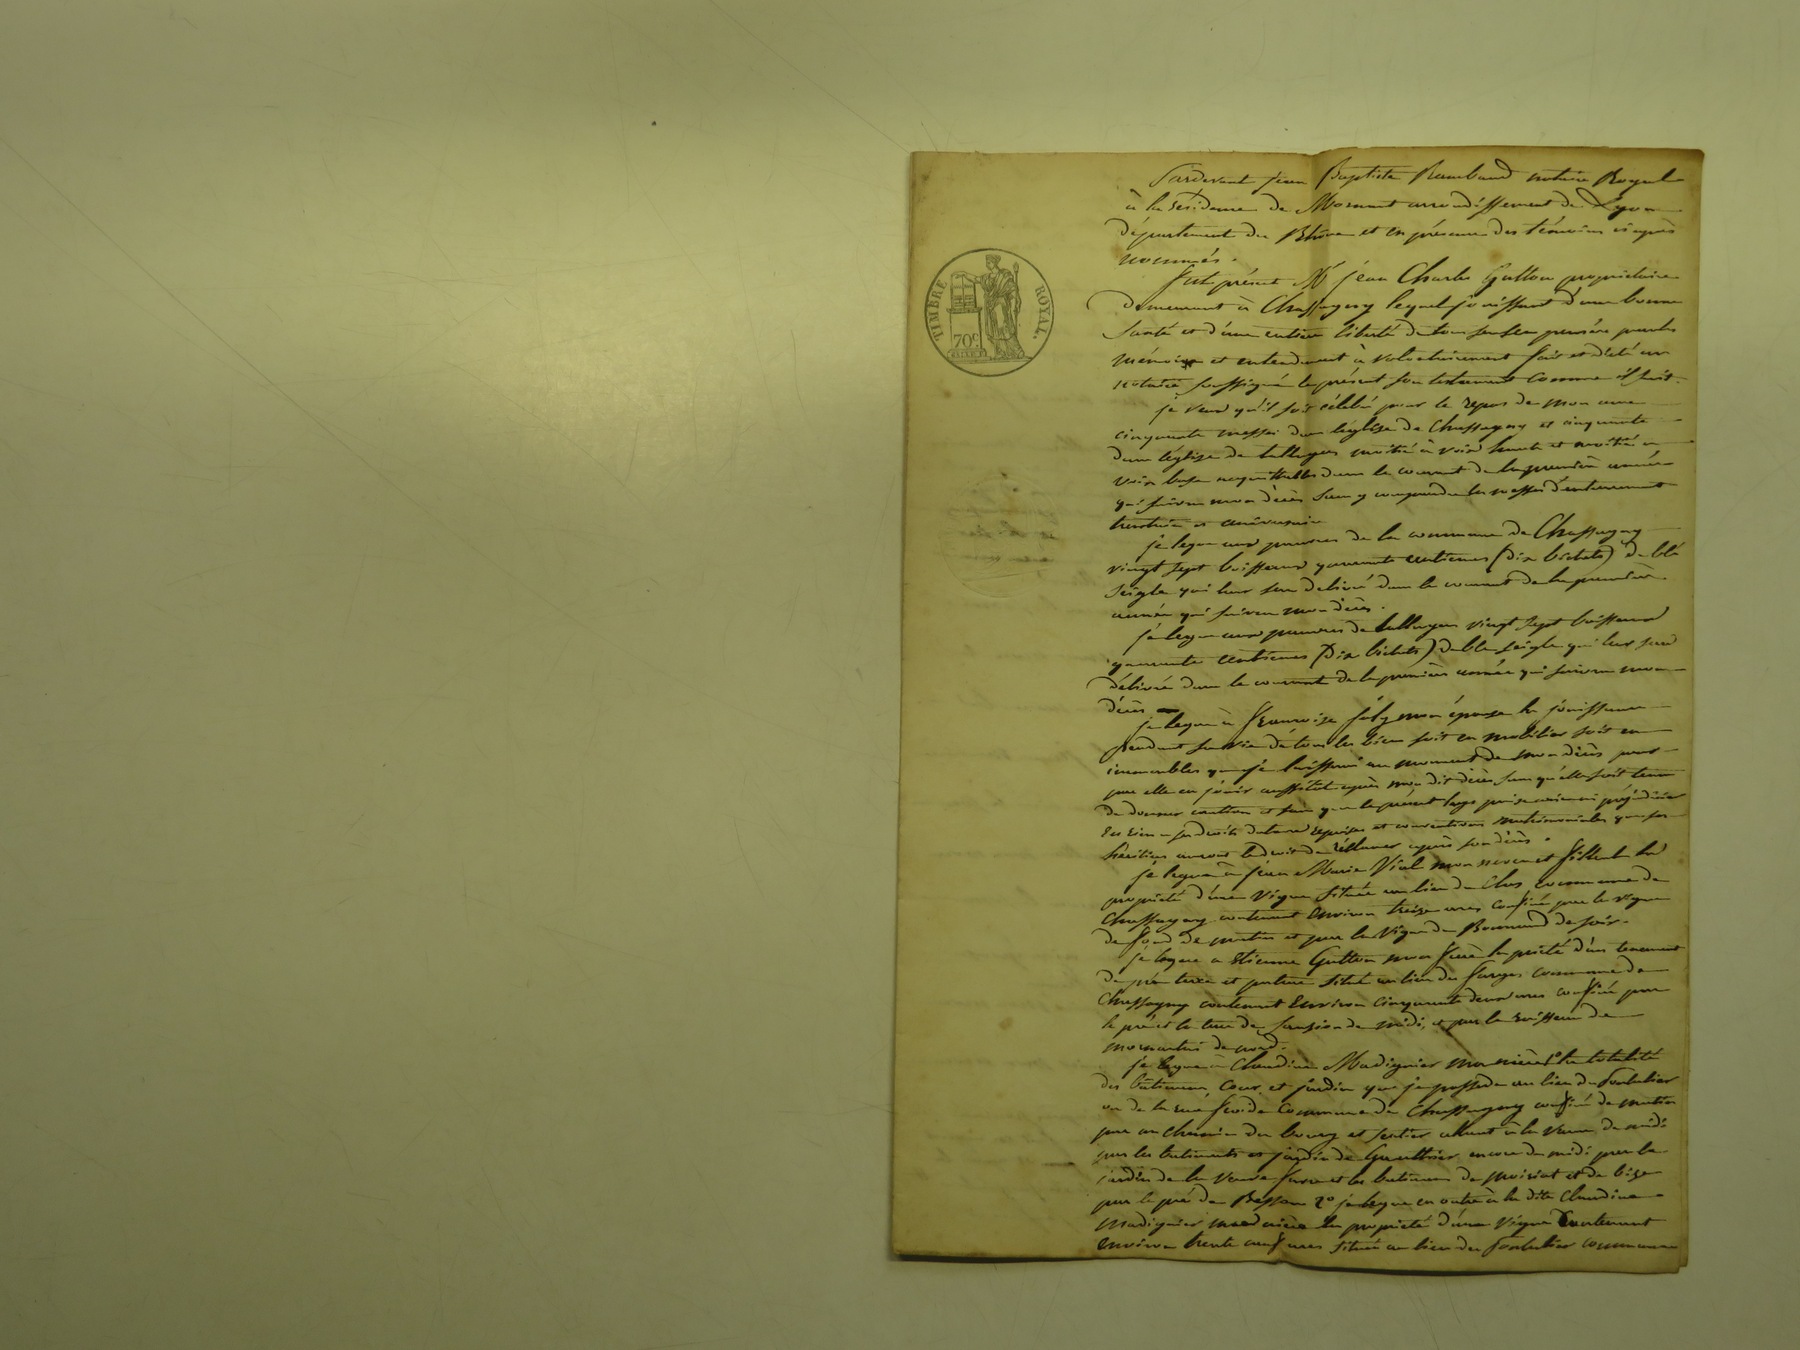 TIMBRE ROYAL.
70c
Pardevant Jean Baptiste Rambaud notaire Royal
à la résidence de Mornant arrondissement de Lyon
département du Rhône et en présence des témoins ci après
nommés.
fut présent Mr jean Charles Gutton propriétaire
demeurant à Chassagny lequel jouissant d'une bonne
santé et d'une entière liberté de tous ses sens pensée parole
mémoire et entendement à volontairement fait et dicté au
notaire soussigné le présent son testament comme il suit.
je veux qu'il soit célébré pour le repos de mon ame
cinquante messes dans l'église de Chassagny et cinquante
dans l'église de taluyers moitié à voix haute et moitié a
voix basse acquittables dans le courant de la première année
qui suivra mon décès sans y comprendre les messes d'enterrement
et anniversaire
je legue aux pauvres de la commune de Chassagny
vingt sept boisseaux quarante centiemes (dix bichets) de blé
seigle qui leur sera delivré dans le courant de la première
année qui suivra mon décès.
je legue aux pauvres de talluyers vingt sept boisseaux
quarante centiemes (dix bichets) de blé seigle qui leur sera
délivré dans le courant de la première année qui suivra mon
décès
je legue à françoise mon épouse la jouissance
pendant sa vie de tous les biens soit en mobilier soit en
immeubles que je laisserai au moment de mon décès pour
par elle en jouir aussitôt après mon dit décès sans qu'elle soit tenue
de donner caution et sans que le présent legs puisse préjudicier
en rien a ses droits reprises et conventions matrimoniales que ses
héritiers auront le droit de réclamer après son décès.
je legue à jean Marie Vial mon neveu et filleul la
propriété d'une vigne située au lieu du Clos commune de
Chassagny contenant environ treize ares confiné par la vigne
de de matin et par la vigne de de soir.
je legue a Etienne Gutton mon frère la propriété d'un tenement
de pré terre et pature situé au lieu des farges commune de
Chassagny contenant environ cinquante deux ares confiné par
le pré et la terre de de midi, et par le ruisseau de
de nord.
je legue à Claudine Madignier ma nièce 1o la totalité
des bâtiments, cour, et jardin que je possède au lieu du
ou de la rue froide commune de Chassagny confiné de matin
par un chemin du bourg et sentier allant à la de midi
par les batiments et jardin de Gauthier encore de midi par le
jardin de la veuve et les batiments de et de bize
par le pré de Besson 2o je legue en outre à la dite Claudine
Madignier ma nièce la propriété d'une vigne contenant
environ trente neuf ares située au lieu du commune